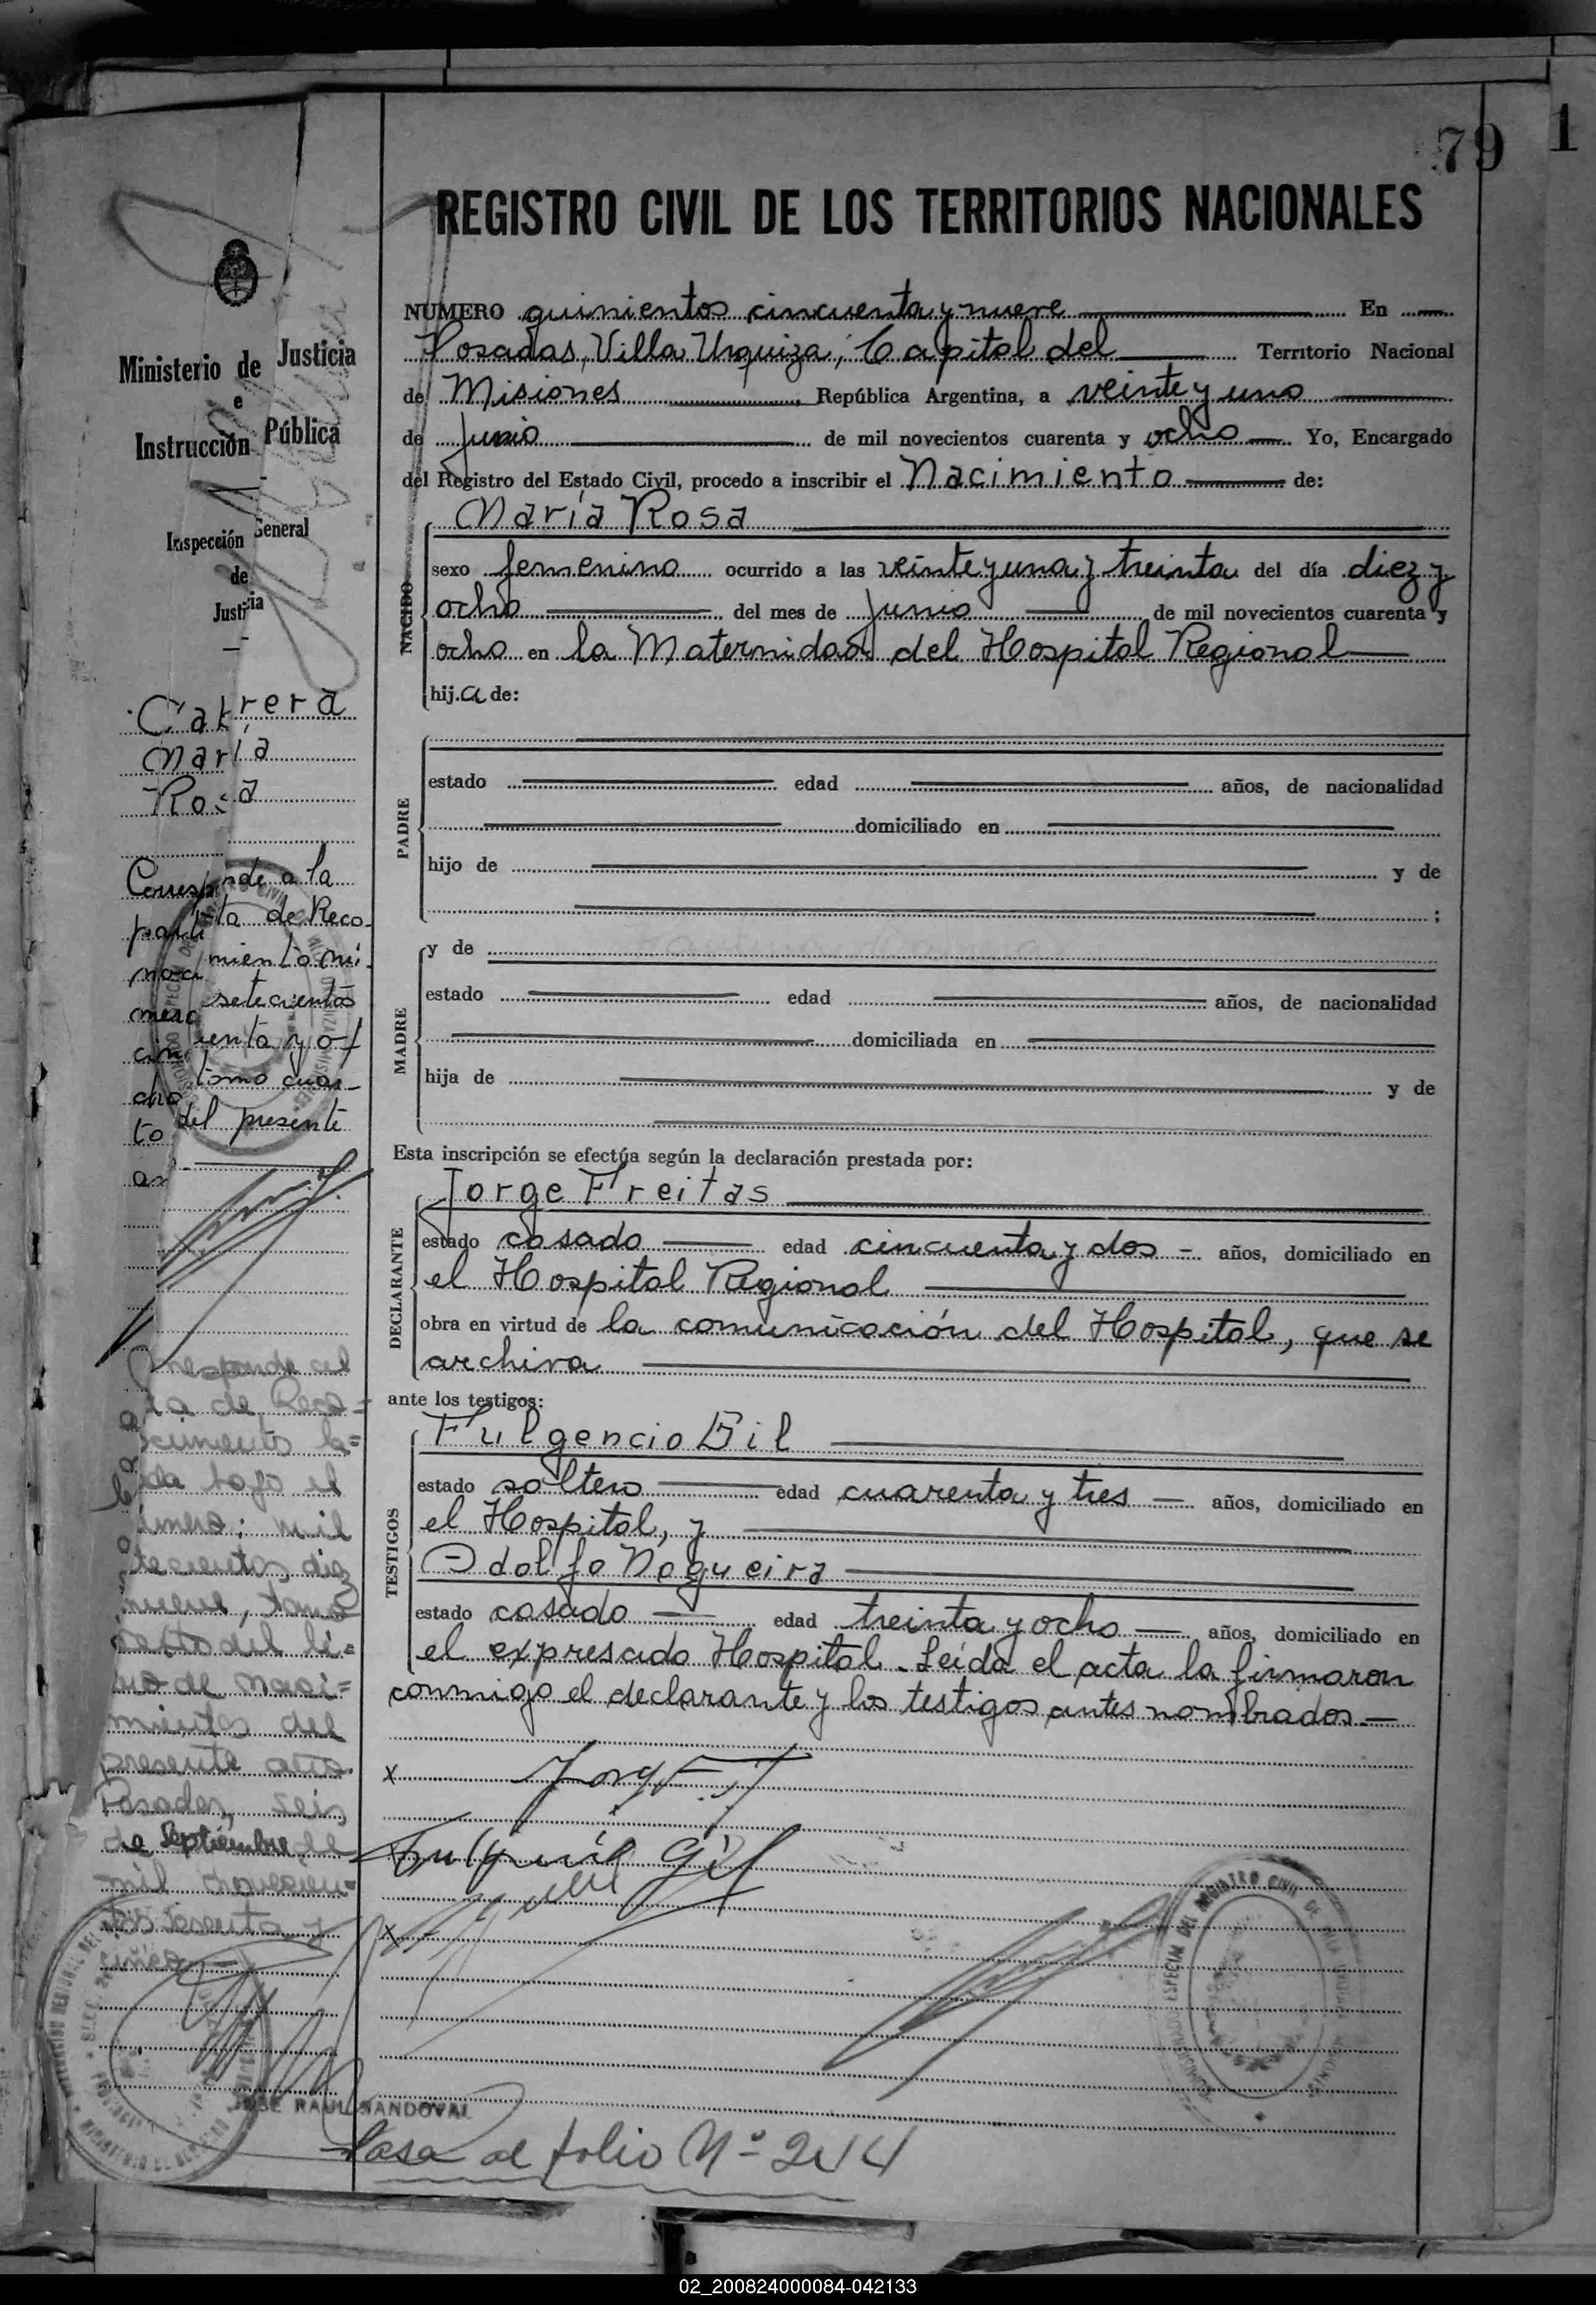 79
1
REGISTRO CIVIL DE LOS TERRITORIOS NACIONALES
Ministerio de Justicia
e
Instrucción Pública
Inspección General
de
Justicia
Cabrera
María
Rosa
Corresponde a la
partida de Reco-
nocimiento nú-
mero setecientos
cincuenta y o-
cho tomo cuar-
to del presente
Corresponde al
acta de Reco=
nocimiento la=
bajo el
número: mil
setecientos diez
nueve, tomo
sexto del li=
bro de naci=
mientos del
presente año.
Posadas, seis
de Septiembre de
mil novecien=
tos sesenta y
cinco
NUMERO quinientos cincuenta y nueve En
Posadas, Villa Urquiza, Capital del Territorio Nacional
de Misiones, República Argentina, a veinte y uno
de junio de mil novecientos cuarenta y ocho Yo, Encargado
del Registro del Estado Civil, procedo a inscribir el Nacimiento de:
NACIDO
María Rosa
sexo femenino ocurrido a las veinte y una y treinta del día diez y
ocho del mes de junio de mil novecientos cuarenta y
ocho en la Maternidad del Hospital Regional
hij.a de:
PADRE
estado edad años, de nacionalidad
domiciliado en
hijo de y de
;
MADRE
y de
estado edad años, de nacionalidad
domiciliada en
hija de y de
Esta inscripción se efectúa según la declaración prestada por:
DECLARANTE
Jorge Freitas
estado casado edad cincuenta y dos - años, domiciliado en
el Hospital Regional
obra en virtud de la comunicación del Hospital, que se
archiva
ante los testigos:
TESTIGOS
Fulgencio Gil
estado soltero edad cuarenta y tres años, domiciliado en
el Hospital, y
Adolfo Nogueira
estado casado edad treinta y ocho años, domiciliado en
el expresado Hospital. Leída el acta la firmaron
conmigo el declarante y los testigos antes nombrados.-
x
Fulgencio Gil
x
JOSE RAUL SANDOVAL
Pasa al folio Nº 244
02_200824000084-042133